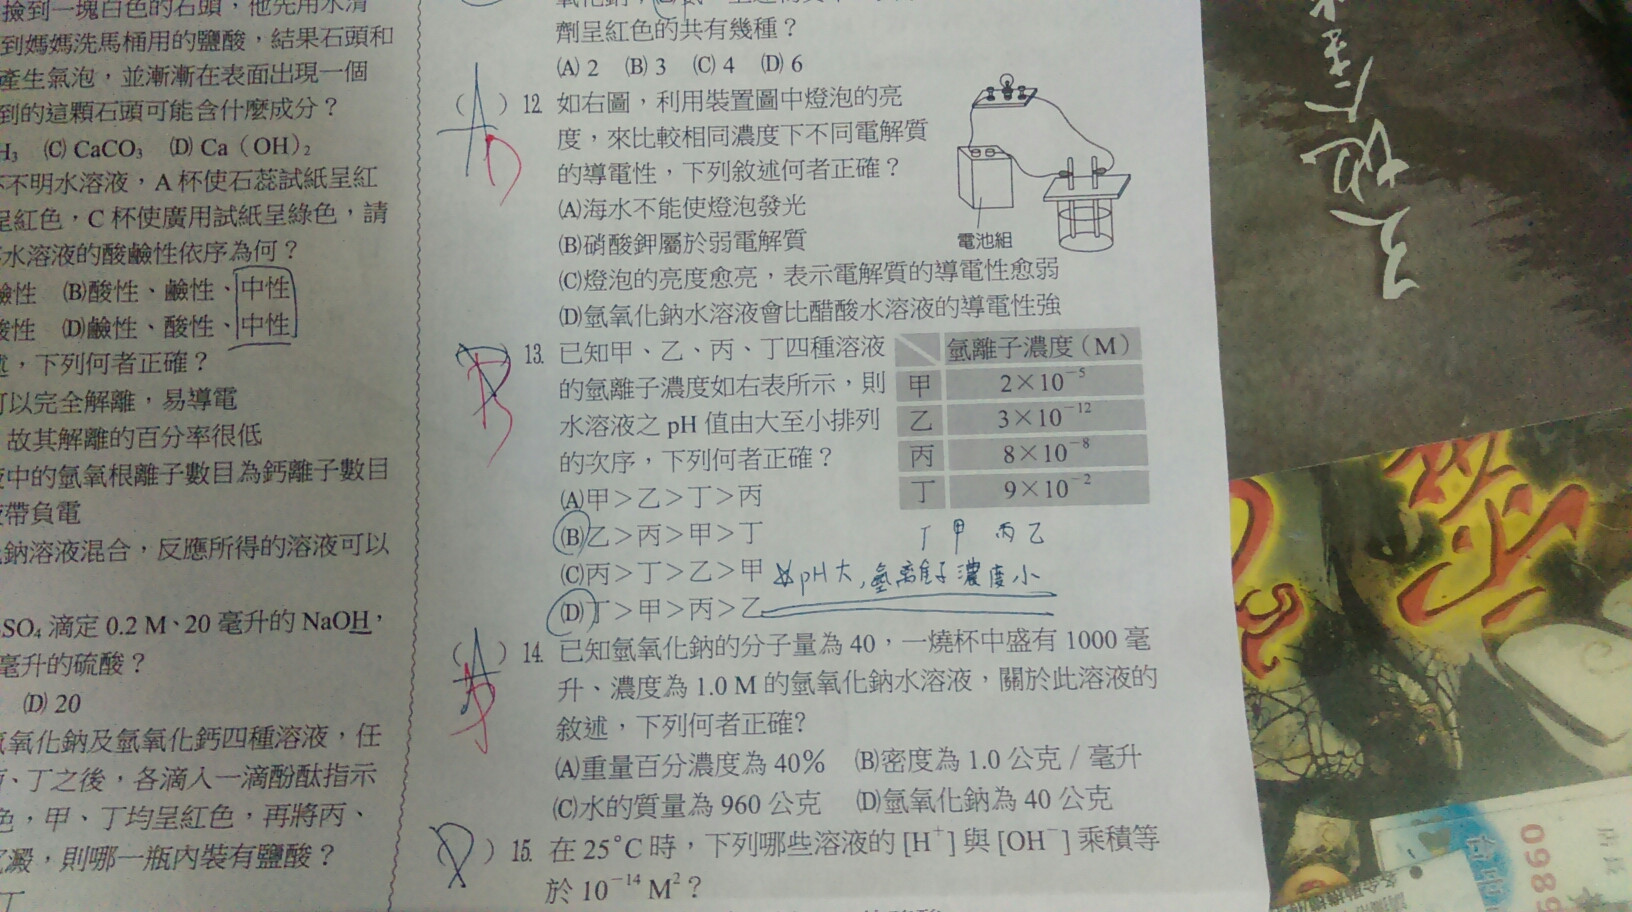 撿到一塊白色的石頭，他先用水清
到媽媽洗馬桶用的鹽酸，結果石頭和
產生氣泡，並漸漸在表面出現一個
到的這顆石頭可能含什麼成分？
H₃ (C) CaCO₃ (D) Ca（OH）₂
不明水溶液，A 杯使石蕊試紙呈紅
呈紅色，C 杯使廣用試紙呈綠色，請
水溶液的酸鹼性依序為何？
鹼性 (B)酸性、鹼性、中性
酸性 (D)鹼性、酸性、中性
，下列何者正確？
可以完全解離，易導電
故其解離的百分率很低
中的氫氧根離子數目為鈣離子數目
帶負電
鈉溶液混合，反應所得的溶液可以
SO₄ 滴定 0.2 M、20 毫升的 NaOH，
毫升的硫酸？
(D) 20
氧化鈉及氫氧化鈣四種溶液，任
、丁之後，各滴入一滴酚酞指示
色，甲、丁均呈紅色，再將丙、
澱，則哪一瓶內裝有鹽酸？
丁
劑呈紅色的共有幾種？
(A) 2 (B) 3 (C) 4 (D) 6
（A）12. 如右圖，利用裝置圖中燈泡的亮
D
度，來比較相同濃度下不同電解質
的導電性，下列敘述何者正確？
(A)海水不能使燈泡發光
(B)硝酸鉀屬於弱電解質
(C)燈泡的亮度愈亮，表示電解質的導電性愈弱
(D)氫氧化鈉水溶液會比醋酸水溶液的導電性強
電池組
（D）13. 已知甲、乙、丙、丁四種溶液
B
的氫離子濃度如右表所示，則
水溶液之 pH 值由大至小排列
的次序，下列何者正確？
氫離子濃度（M）
甲 2×10⁻⁵
乙 3×10⁻¹²
丙 8×10⁻⁸
丁 9×10⁻²
(A)甲＞乙＞丁＞丙
(B)乙＞丙＞甲＞丁
丁 甲 丙 乙
(C)丙＞丁＞乙＞甲
pH大，氫離子濃度小
(D)丁＞甲＞丙＞乙
（A）14. 已知氫氧化鈉的分子量為 40，一燒杯中盛有 1000 毫
D
升、濃度為 1.0 M 的氫氧化鈉水溶液，關於此溶液的
敘述，下列何者正確?
(A)重量百分濃度為 40% (B)密度為 1.0 公克 / 毫升
(C)水的質量為 960 公克 (D)氫氧化鈉為 40 公克
（D）15. 在 25°C 時，下列哪些溶液的 [H⁺] 與 [OH⁻] 乘積等
於 10⁻¹⁴ M²？
6860